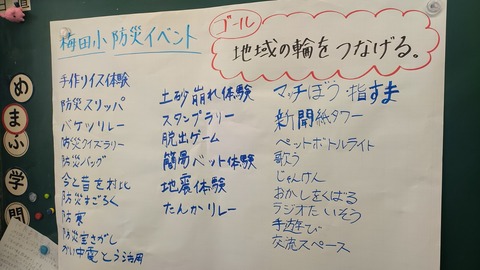 梅田小防災イベント
ゴール
地域の輪をつなげる。
手作りイス体験
防災スリッパ
バケツリレー
防災クイズラリー
防災バッグ
今と昔をお比
防災すごろく
防寒
防災宝さがし
かい中電とう活用
土砂崩れ体験
スタンプラリー
脱出ゲーム
簡易ベット体験
地震体験
たんかリレー
マッチぼう 指すま
新聞紙タワー
ペットボトルライト
歌う
じゃんけん
おかしをくばる
ラジオたいそう
手遊び
交流スペース
めあて
まふ
学
問